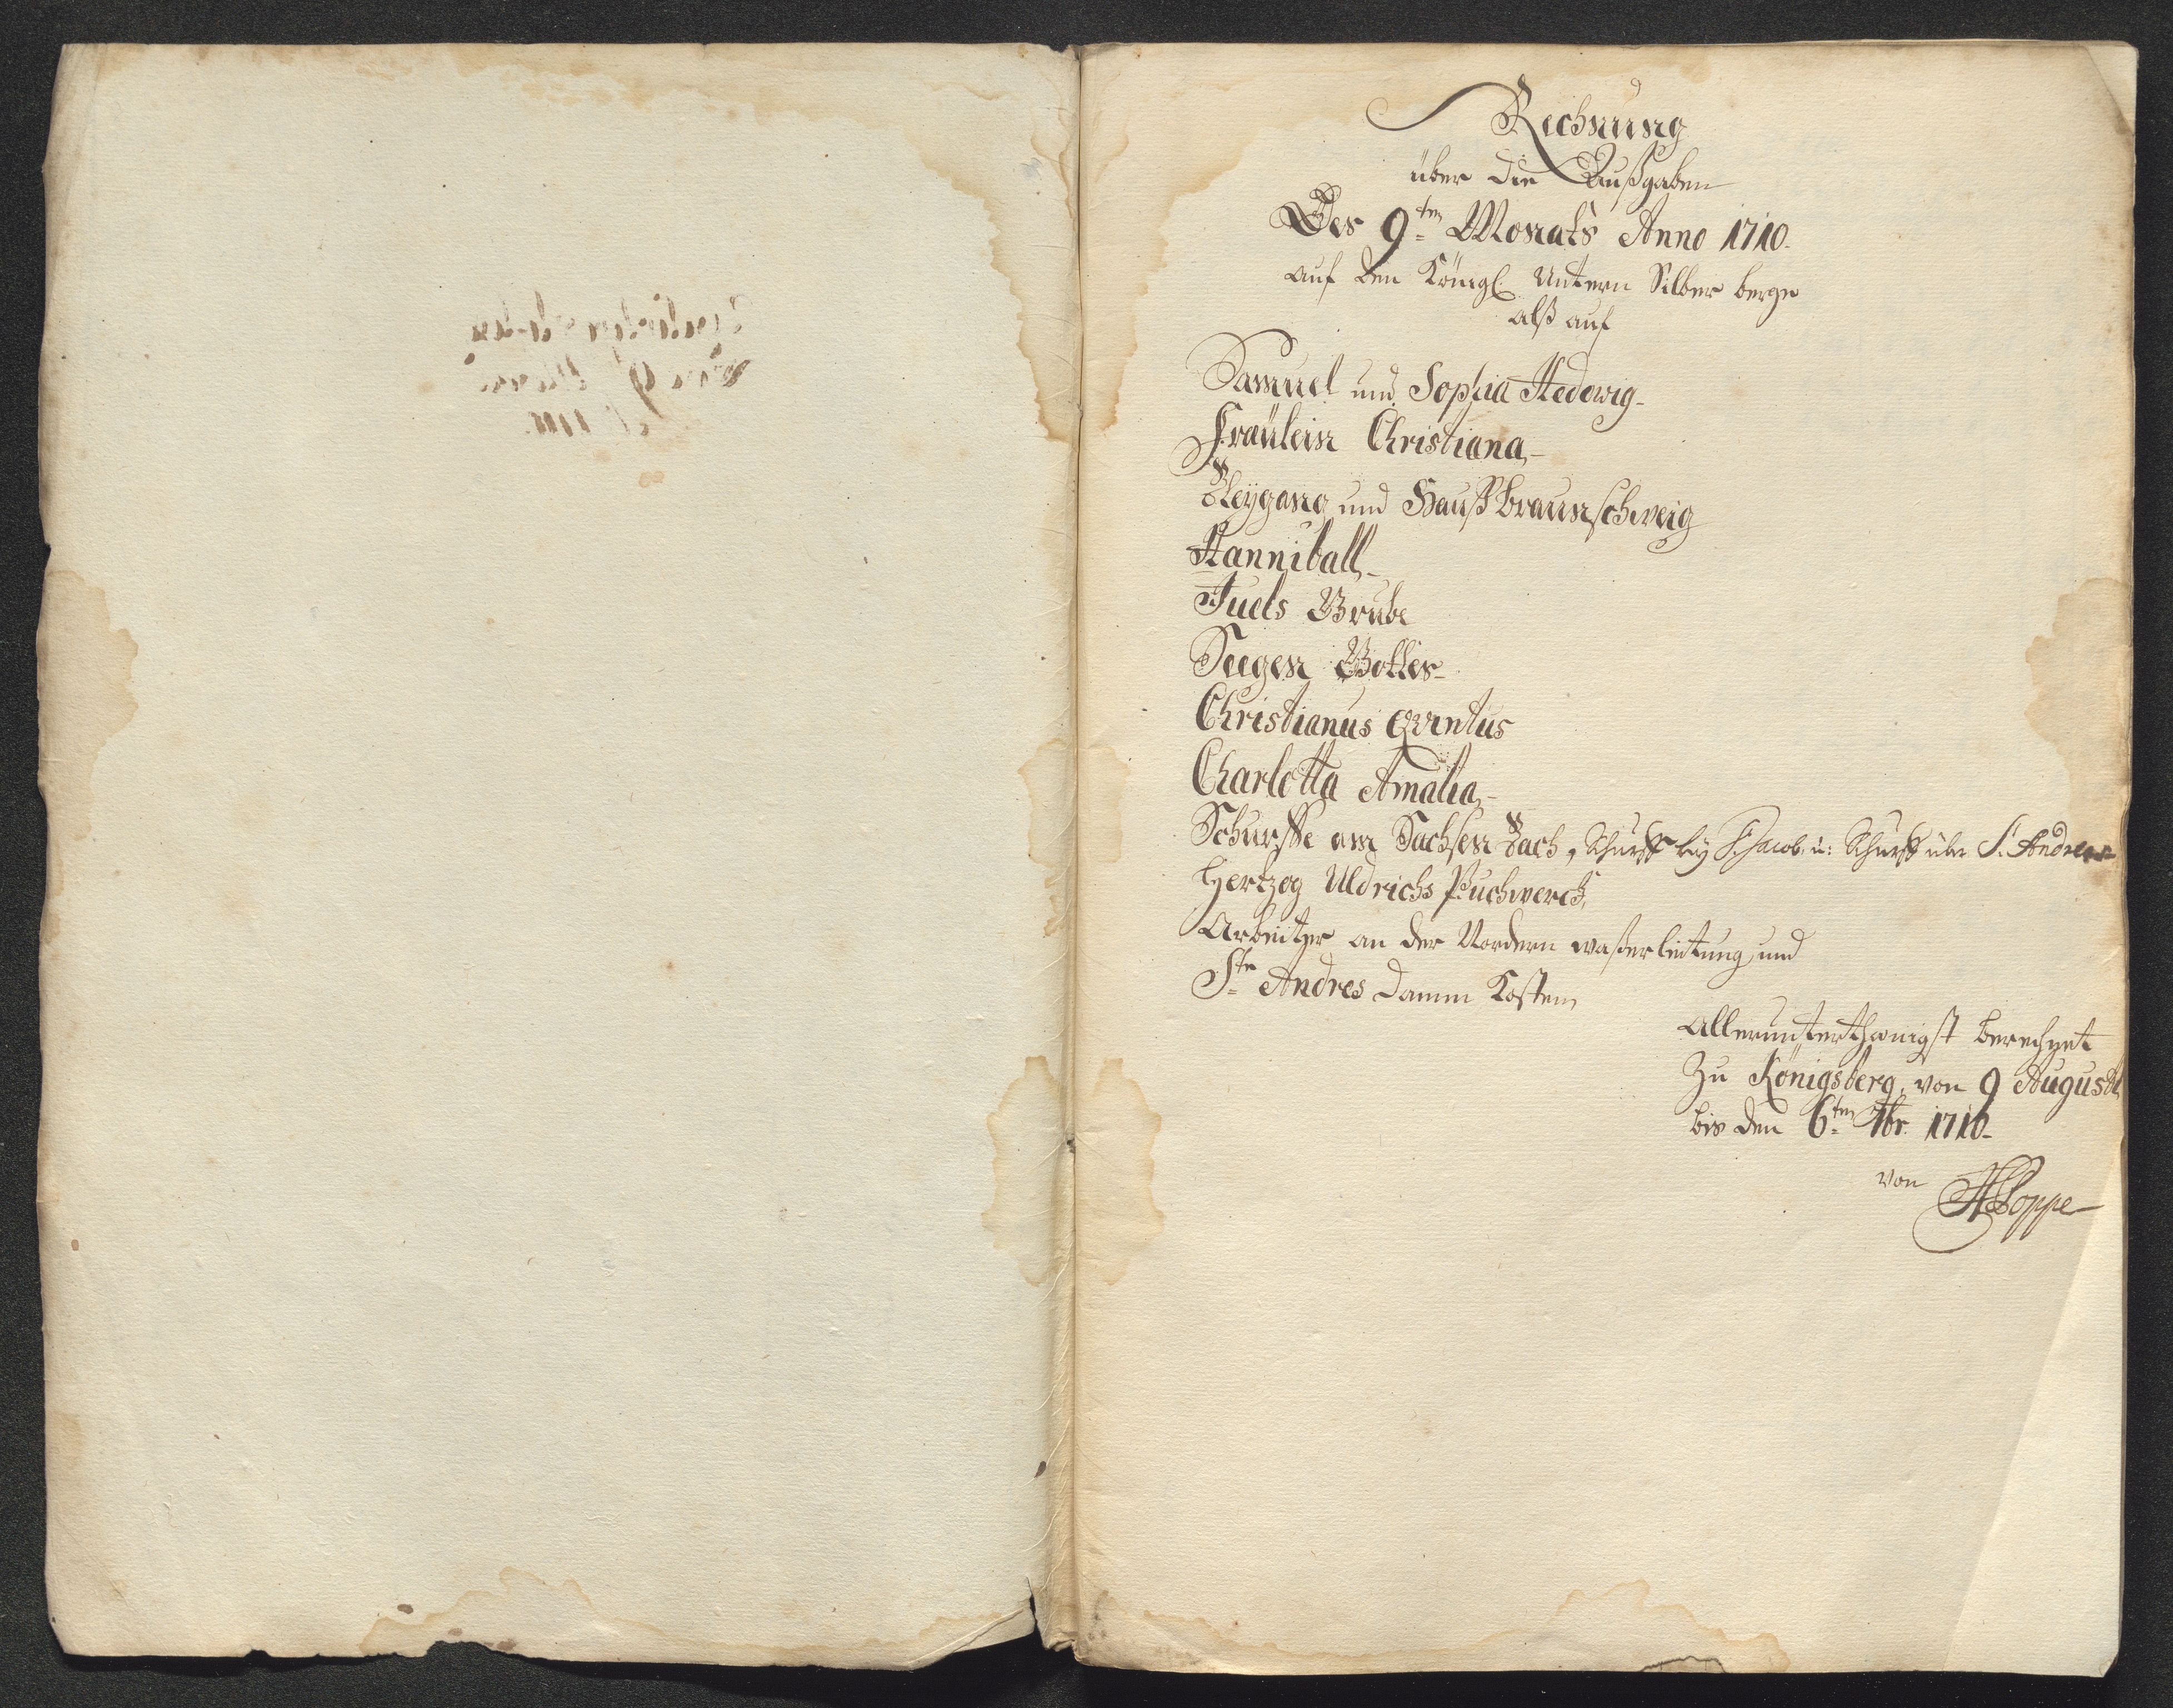 Rechnung
über die Außgaben
Des 9ten Monats Anno 1710.
auf den Königl. Untern Silber berge
alß auf
Samuel und Sophia Hedewig
Fräulein Christiana,
Bleygang und Hauß braunschweig
Hanniball,
Juels Grube
Seegen Gottes
Christianus Qvintus
Charlotta Amalia,
Schurffe am Sachsen Bach, Schurff bey St. Jacob u: Schurff über St. Andreas
Hertzog Uldrichs Puchwerck,
Arbeiter an der Vordern waßerleitung, und
Ste Andres Damm Kosten,
Allerunterthänigst berechnet
Zu Königsberg, von 9 August
bis den 6ten 7br. 1710.
von